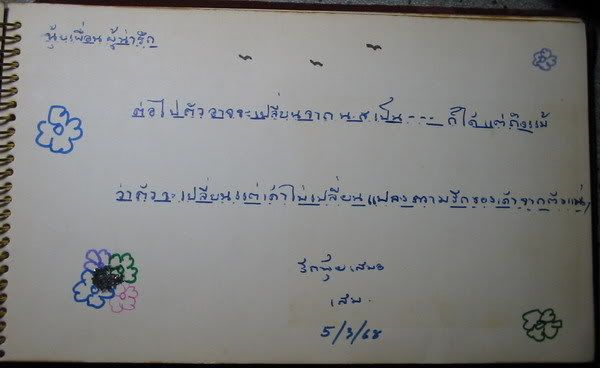 นุ้ยเพื่อนผู้น่ารัก
ต่อไปตัวอาจจะเปลี่ยนจาก น.ส เป็น --- ก็ได้แต่ถึงแม้
ว่าตัวจะเปลี่ยนแต่เค้าไม่เปลี่ยนแปลงความรักของเค้าจากตัวแน่
รักนุ้ยเสมอ
5/3/68